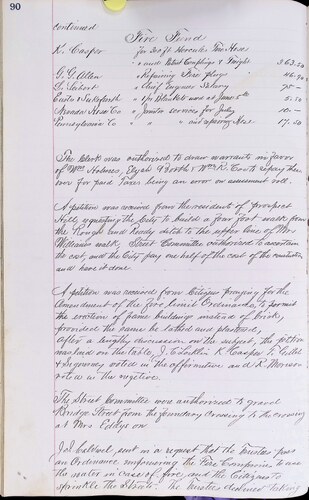 90
continued
Fire Fund
K. Casper for 200 ft Hercules Fire Hose
" and Patent Couplings & Freight 363.50
G. G. Allen " Repairing Fire plugs 46.
" Chief Engineer Salary 75 —
" Blankets used at June 5th 5.
Nevada Hose Co " Janitor services for July 10 —
Pennsylvania Co " " " and repairing Hose 17.50
The Clerk was authorized to draw warrants in favor
of Mrs Holmes, Elijah & W. K. to repay them
over for paid Taxes being an error on assessment roll.
A petition was received from the residents of Prospect
Hill, requesting the City to build a four foot walk from
the Rough and Ready ditch to the upper line of Mrs
Williams walk, Street Committee authorized to ascertain
the cost, and the City pay one half of the cost of the construction
and have it done
A petition was received from Citizens praying for the
Amendment of the fire limit Ordinance to permit
the erection of frame buildings instead of brick,
provided the same be lathed and plastered,
after a lengthy discussion on the subject, the petition
was laid on the table, K. Casper
voted in the affirmative and
voted in the negative.
The Street Committee was authorized to gravel
Bridge Street from the foundry Crossing to the crossing
at Mrs Eddys on
J. I. Caldwell sent in a request that the Trustees pass
an Ordinance empowering the Fire Companies to use
the water in case of fire, and the Citizens to
sprinkle the Streets. The Trustees